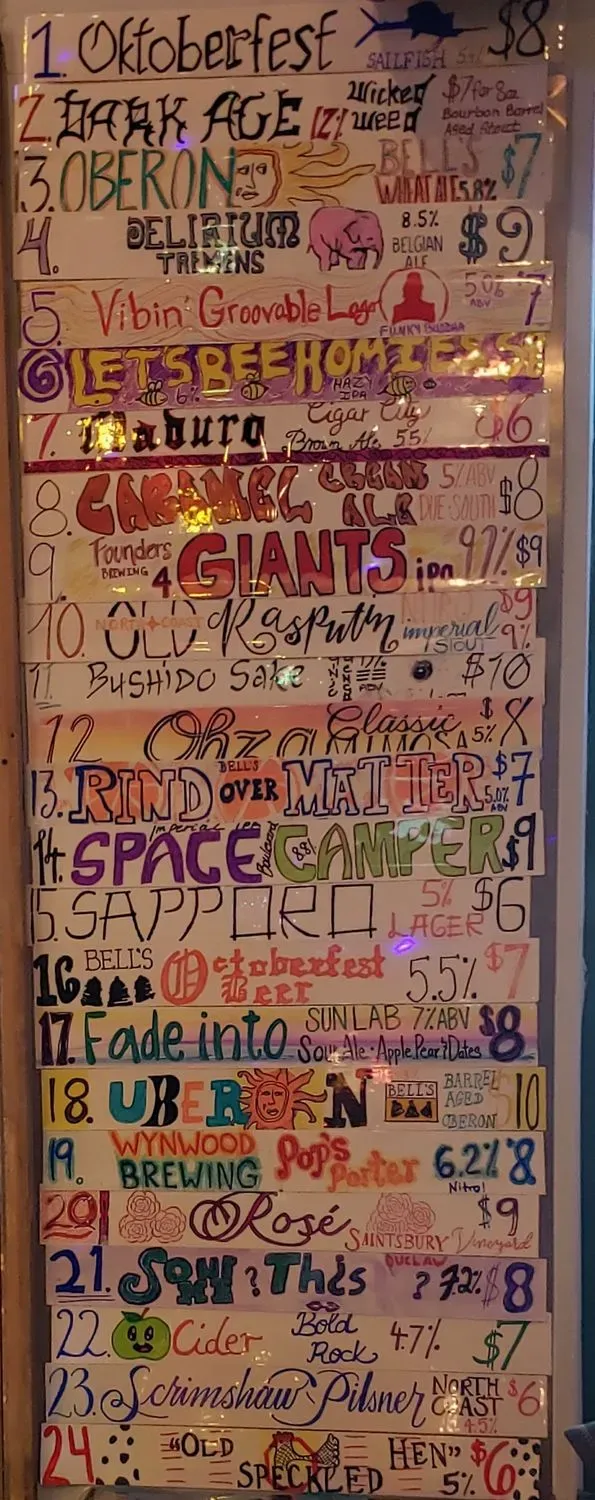 1. Oktoberfest SAILFISH $8
2. DARK AGE 12% Wicked Weed $7 for 8oz Bourbon Barrel Aged Stout
3. OBERON BELL'S WHEAT ALE 5.8% $7
4. DELIRIUM TREMENS 8.5% BELGIAN ALE $9
5. Vibin' Groovable Lager FUNKY BUDDHA 5.0% ABV 7
6 LETS BEE HOMIES 6% HAZY IPA
7. Maduro Cigar City Brown Ale 5.5% $6
8. CARAMEL CREAM ALE 5% ABV DUE SOUTH $8
9. Founders BREWING 4 GIANTS ipa 9.7% $9
10. NORTH COAST OLD Rasputin NITRO imperial STOUT $9 9%
11. BUSHIDO Sake ABV $10
12 Ohza Classic MIMOSA 5% $8
13. RIND BELL'S OVER MATTER 5.0% ABV $7
14. SPACE Imperial IPA Boulevard 8.8% CAMPER $9
15. SAPPORO 5% LAGER $6
16 BELL'S Octoberfest Beer 5.5% $7
17. Fade into SUN LAB 7% ABV Sour Ale · Apple Pear & Dates $8
18. UBERON BELL'S BARREL AGED OBERON $10
19. WYNWOOD BREWING Pop's Porter 6.2% Nitro! $8
20 Rosé SAINTSBURY Vineyard $9
21. ? This OUTLAW ? 7.2% $8
22. Cider Bold Rock 4.7% $7
23. Scrimshaw Pilsner NORTH COAST 4.5% $6
24 "OLD SPECKLED HEN" 5% $6